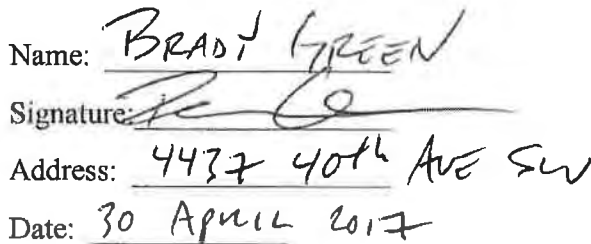 Name: BRADY GREEN
Signature:
Address: 4437 40th AVE SW
Date: 30 APRIL 2017